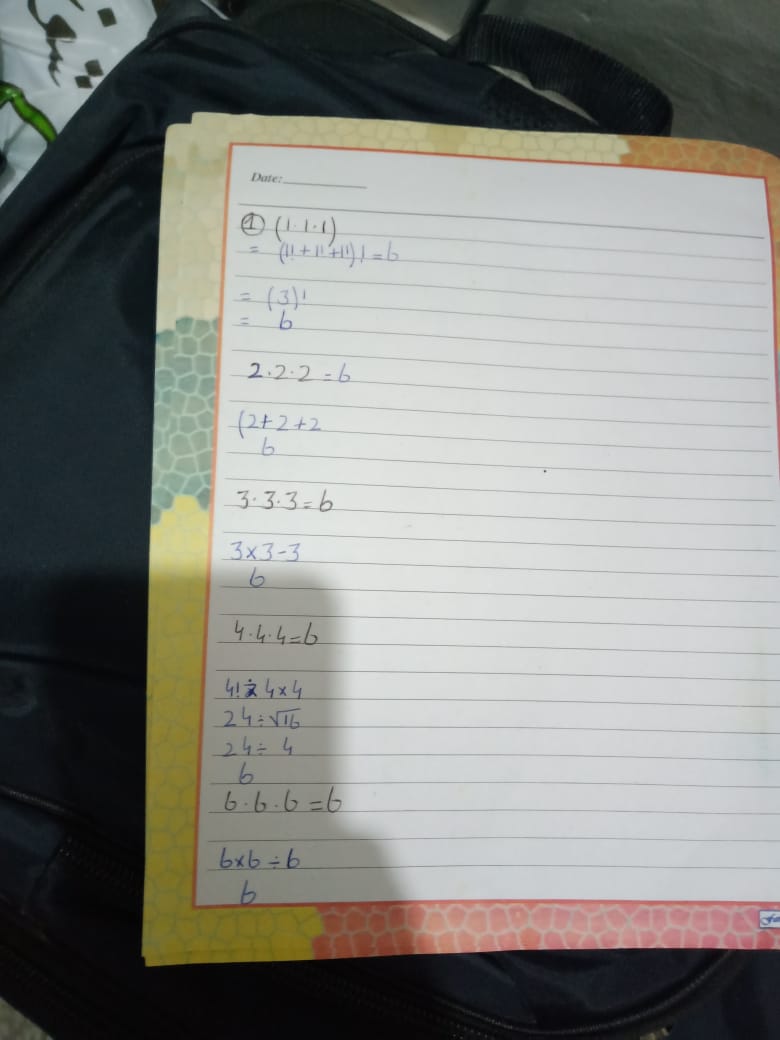 Date:
① (1·1·1)
= (1!+1!+1!)! = 6
= (3)!
= 6
2·2·2 = 6
(2+2+2
6
3·3·3 = 6
3×3-3
6
4·4·4=6
4! ÷ 4×4
24÷√16
24÷ 4
6
6·6·6 = 6
6×6 ÷ 6
6